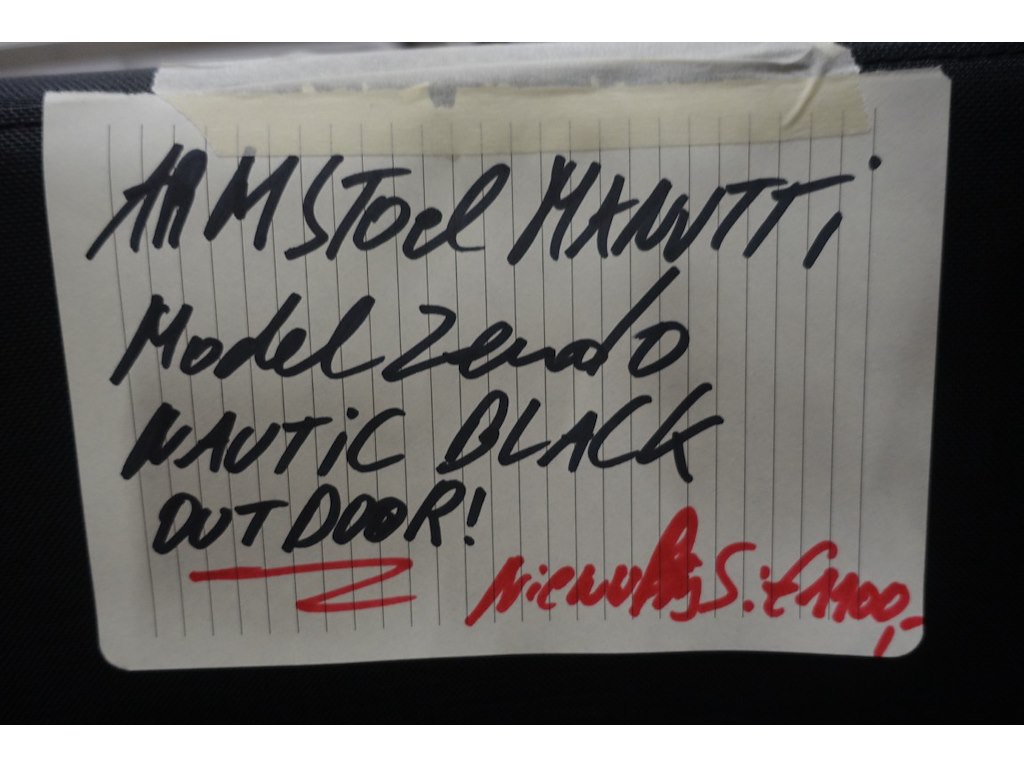 ARMSToel MANUTTi
Model Zendo
NAUTiC BLACK
OUTDOOR!
NieuwPrijS: € 1100,-